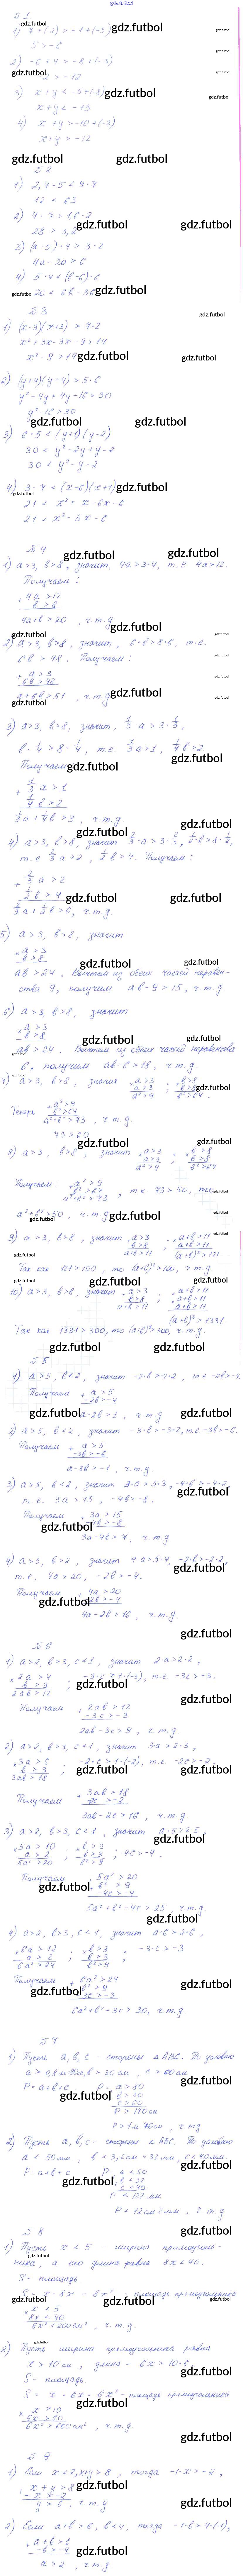 gdz.futbol
№ 1
1) 7 + (-2) > -1 + (-3)
5 > -6
2) -6 + 4 > -8 + (-3)
> -12
3) x + y < -5 + (-8)
x + y < -13
4) x + y > -10 + (-2)
x + y > -12
№ 2
1) 2,4 · 5 < 9 · 7
12 < 63
2) 4 · 7 > 1,6 · 2
28 > 3,2
3) (a-5) · 4 > 3 · 2
4a - 20 > 6
4) 5 · 4 < (b-6) · 6
20 < 6b - 36
№ 3
1) (x-3)(x+3) > 7 · 2
x² + 3x - 3x - 9 > 14
x² - 9 > 14
2) (y+4)(y-4) > 5 · 6
y² - 4y + 4y - 16 > 30
y² - 16 > 30
3) 6 · 5 < (y+1)(y-2)
30 < y² - 2y + y - 2
30 < y² - y - 2
4) 3 · 7 < (x-6)(x+1)
21 < x² + x - 6x - 6
21 < x² - 5x - 6
№ 4
1) a > 3, b > 8, значит 4a > 3·4, т.е 4a > 12.
Получаем:
+ 4a > 12
b > 8
4a + b > 20, ч.т.д
2) a > 3, b > 8, значит, 6·b > 8·6, т.е.
6b > 48. Получаем:
+ a > 3
6b > 48
a + 6b > 51, ч.т.д
3) a > 3, b > 8, значит, 1/3 · a > 3 · 1/3,
b · 1/4 > 8 · 1/4, т.е. 1/3 a > 1, 1/4 b > 2
Получаем
+ 1/3 a > 1
1/4 b > 2
1/3 a + 1/4 b > 3, ч.т.д
4) a > 3, b > 8, значит 2/3 · a > 3 · 2/3, 1/2 · b > 8 · 1/2,
т.е 2/3 a > 2, 1/2 b > 4. Получаем:
+ 2/3 a > 2
1/2 b > 4
2/3 a + 1/2 b > 6, ч.т.д
5) a > 3, b > 8, значит
× a > 3
b > 8
ab > 24. Вычтем из обеих частей неравен-
ства 9, получим ab - 9 > 15, ч.т.д.
6) a > 3, b > 8, значит
× a > 3
b > 8
ab > 24. Вычтем из обеих частей неравенства
6, получим ab - 6 > 18, ч.т.д
7) a > 3, b > 8, значит × a > 3 ; × b > 8
a > 3 b > 8
a² > 9 b² > 64.
Теперь + a² > 9
b² > 64
a² + b² > 73, ч.т.д
73 > 60
8) a > 3, b > 8, значит × a > 3 ; × b > 8
a > 3 b > 8
a² > 9 b² > 64
Получаем: + a² > 9
b² > 64
a² + b² > 73, т.к 73 > 50, то
a² + b² > 50, ч.т.д
9) a > 3, b > 8, значит + a > 3 ; × a+b > 11
b > 8 a+b > 11
a+b > 11 (a+b)² > 121
Так как 121 > 100, то (a+b)² > 100, ч.т.д.
10) a > 3, b > 8, значит + a > 3 ; × a+b > 11
b > 8 a+b > 11
a+b > 11 a+b > 11
(a+b)³ > 1331.
Так как 1331 > 300, то (a+b)³ > 300, ч.т.д.
№ 5
1) a > 5, b < 2, значит -2·b > 2·-2, т.е -2b > -4
Получаем + a > 5
-2b > -4
a - 2b > 1, ч.т.д
2) a > 5, b < 2, значит -3·b > -3·2, т.е -3b > -6.
Получаем + a > 5
-3b > -6
a - 3b > -1, ч.т.д
3) a > 5, b < 2, значит 3·a > 5·3, -4·b > -4·2
т.е. 3a > 15, -4b > -8.
Получаем + 3a > 15
-4b > -8
3a - 4b > 7, ч.т.д.
4) a > 5, b > 2, значит 4·a > 5·4, -2·b > -2·2,
т.е. 4a > 20, -2b > -4.
Получаем + 4a > 20
-2b > -4
4a - 2b > 16, ч.т.д.
№ 6
1) a > 2, b > 3, c < 1, значит 2·a > 2·2,
× 2a > 4 ; -3·c > 1·(-3), т.е -3c > -3.
b > 3
2ab > 12
Получаем + 2ab > 12
-3c > -3
2ab - 3c > 9, ч.т.д.
2) a > 2, b > 3, c < 1, значит 3a > 2·3,
× 3a > 6 ; -2·c > 1·(-2), т.е. -2c > -2.
b > 3
3ab > 18
Получаем + 3ab > 18
-2c > -2
3ab - 2c > 16, ч.т.д.
3) a > 2, b > 3, c < 1, значит a·5 > 2·5
× 5a > 10 ; × b > 3 ; -4c > -4.
a > 2 b > 3
5a² > 20 b² > 9
Получаем 5a² > 20
+ b² > 9
-4c > -4
5a² + b² - 4c > 25, ч.т.д.
4) a > 2, b > 3, c < 1, значит a·6 > 2·6,
× 6a > 12 ; × b > 3 ; -3·c > -3
a > 2 b > 3
6a² > 24 b² > 9
Получаем + 6a² > 24
b² > 9
-3c > -3
6a² + b² - 3c > 30, ч.т.д.
№ 7
1) Пусть a, b, c - стороны △ABC. По условию
b > 30 см, c > 60 см
P = a+b+c P: a > 80
b > 30
c > 60
P > 170 см
P > 1м 70см, ч.т.д
2) Пусть a, b, c - стороны △ABC. По условию
a < 50 мм, b < 3,2 см = 32 мм, c < 40 мм
P = a+b+c P: a < 50
b < 32
c < 40
P < 122 мм
P < 12см 2мм, ч.т.д
№ 8
1) Пусть x < 5 - ширина прямоуголь-
ника, а его длина равна 8x < 40.
S - площадь
S = x · 8x = 8x² - площадь прямоугольника
× x < 5
8x < 40
8x² < 200 см², ч.т.д.
2) Пусть ширина прямоугольника равна
x > 10 см, длина - 6x > 10·6
S - площадь
S = x · 6x = 6x² - площадь прямоугольника
× x > 10
6x > 60
6x² > 600 см², ч.т.д.
№ 9
1) Если x < 2, x+y > 8, тогда -1·x > -2,
+ x + y > 8
-x > -2
y > 6, ч.т.д
2) Если a+b > 6, b < 4, тогда -1·b > 4·(-1),
+ a+b > 6
-b > -4
a > 2, ч.т.д